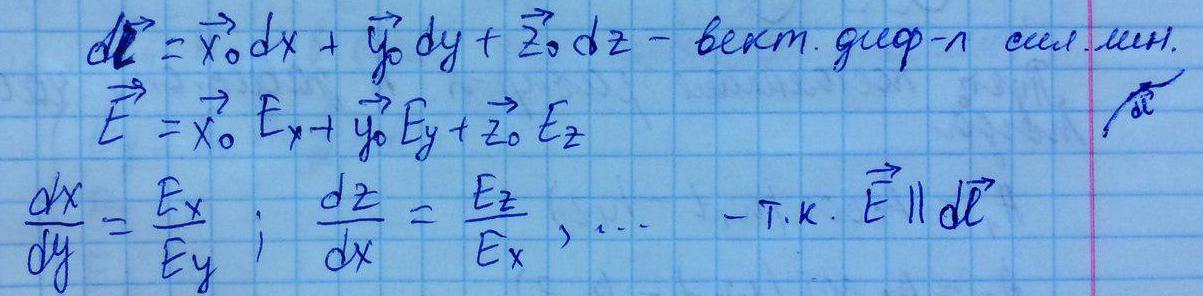 dl⃗ = x⃗₀dx + y⃗₀dy + z⃗₀dz – вект. диф-л сил. лин.
E⃗ = x⃗₀ Eₓ + y⃗₀ E_y + z⃗₀ E_z
dl⃗
dx/dy = Eₓ/E_y ; dz/dx = E_z/Eₓ , ... – т.к. E⃗ || dl⃗